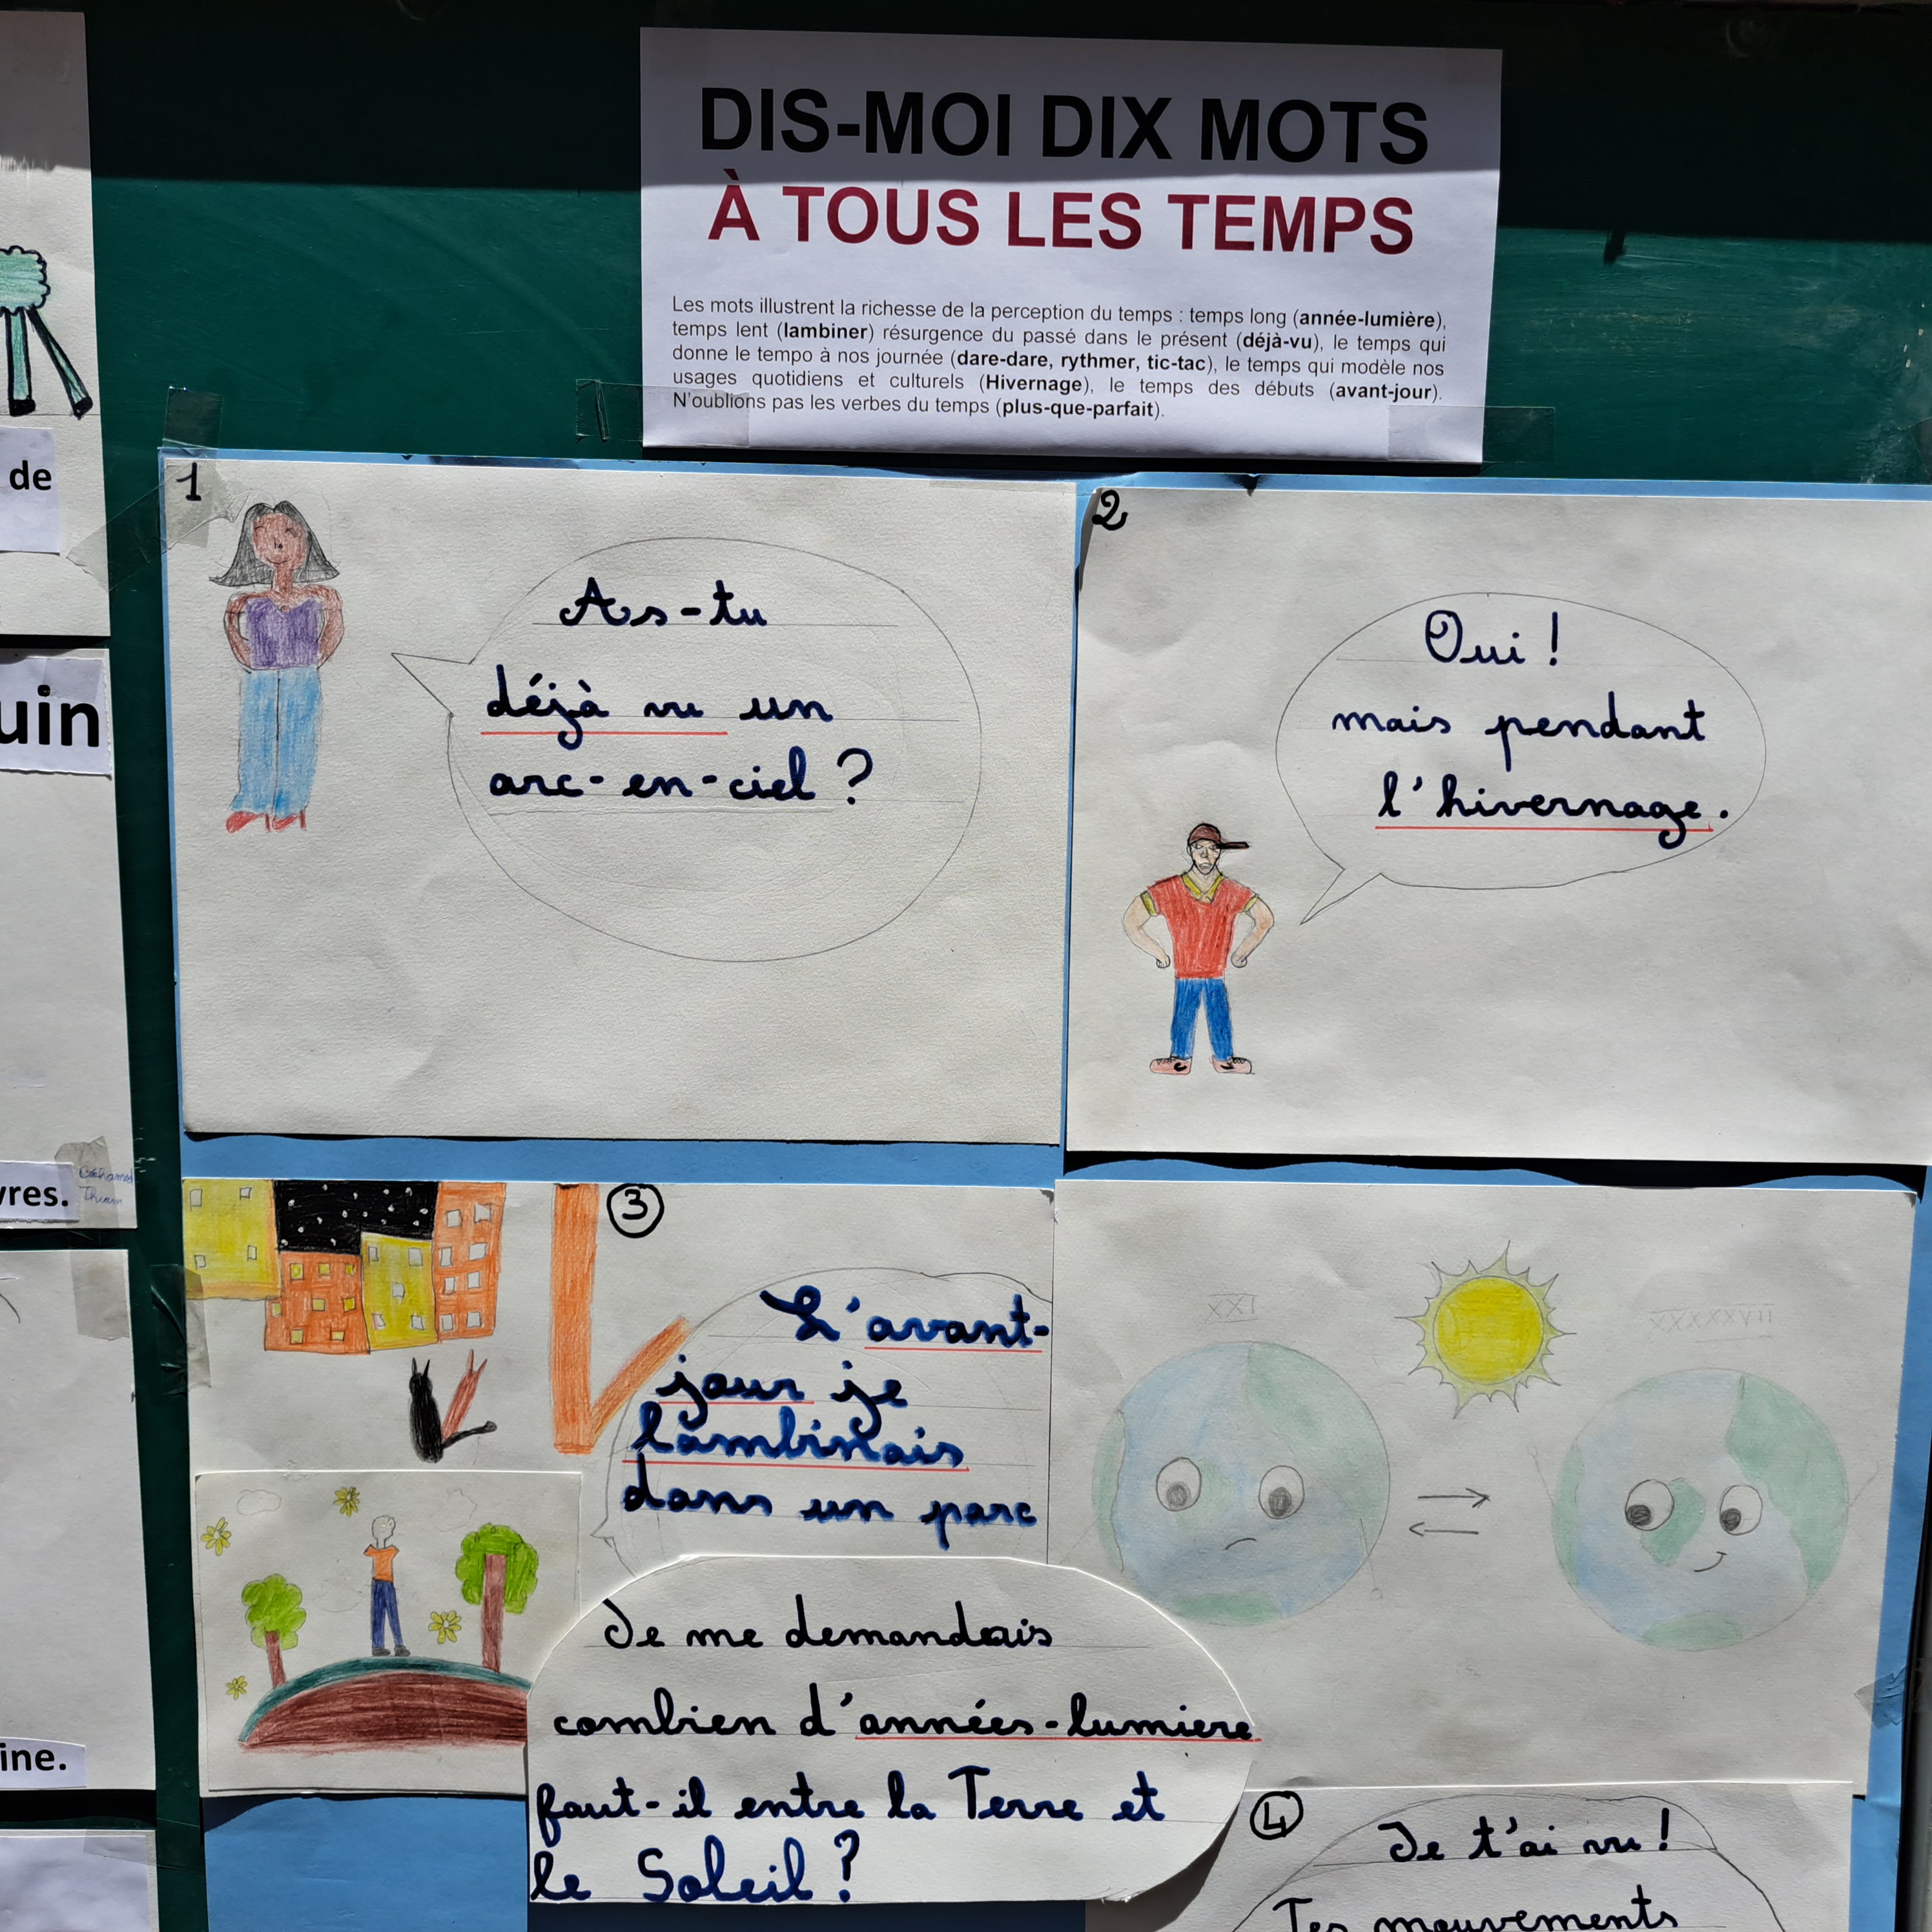 DIS-MOI DIX MOTS
À TOUS LES TEMPS
Les mots illustrent la richesse de la perception du temps : temps long (année-lumière),
temps lent (lambiner) résurgence du passé dans le présent (déjà-vu), le temps qui
donne le tempo à nos journée (dare-dare, rythmer, tic-tac), le temps qui modèle nos
usages quotidiens et culturels (Hivernage), le temps des débuts (avant-jour).
N'oublions pas les verbes du temps (plus-que-parfait).
de
uin
vres.
ine.
1
As-tu
déjà vu un
arc-en-ciel ?
2
Oui !
mais pendant
l'hivernage.
3
L'avant-
jour je
lambinais
dans un parc
Je me demandais
combien d'années-lumiere
faut-il entre la Terre et
le Soleil ?
4
Je t'ai vu !
Tes mouvements